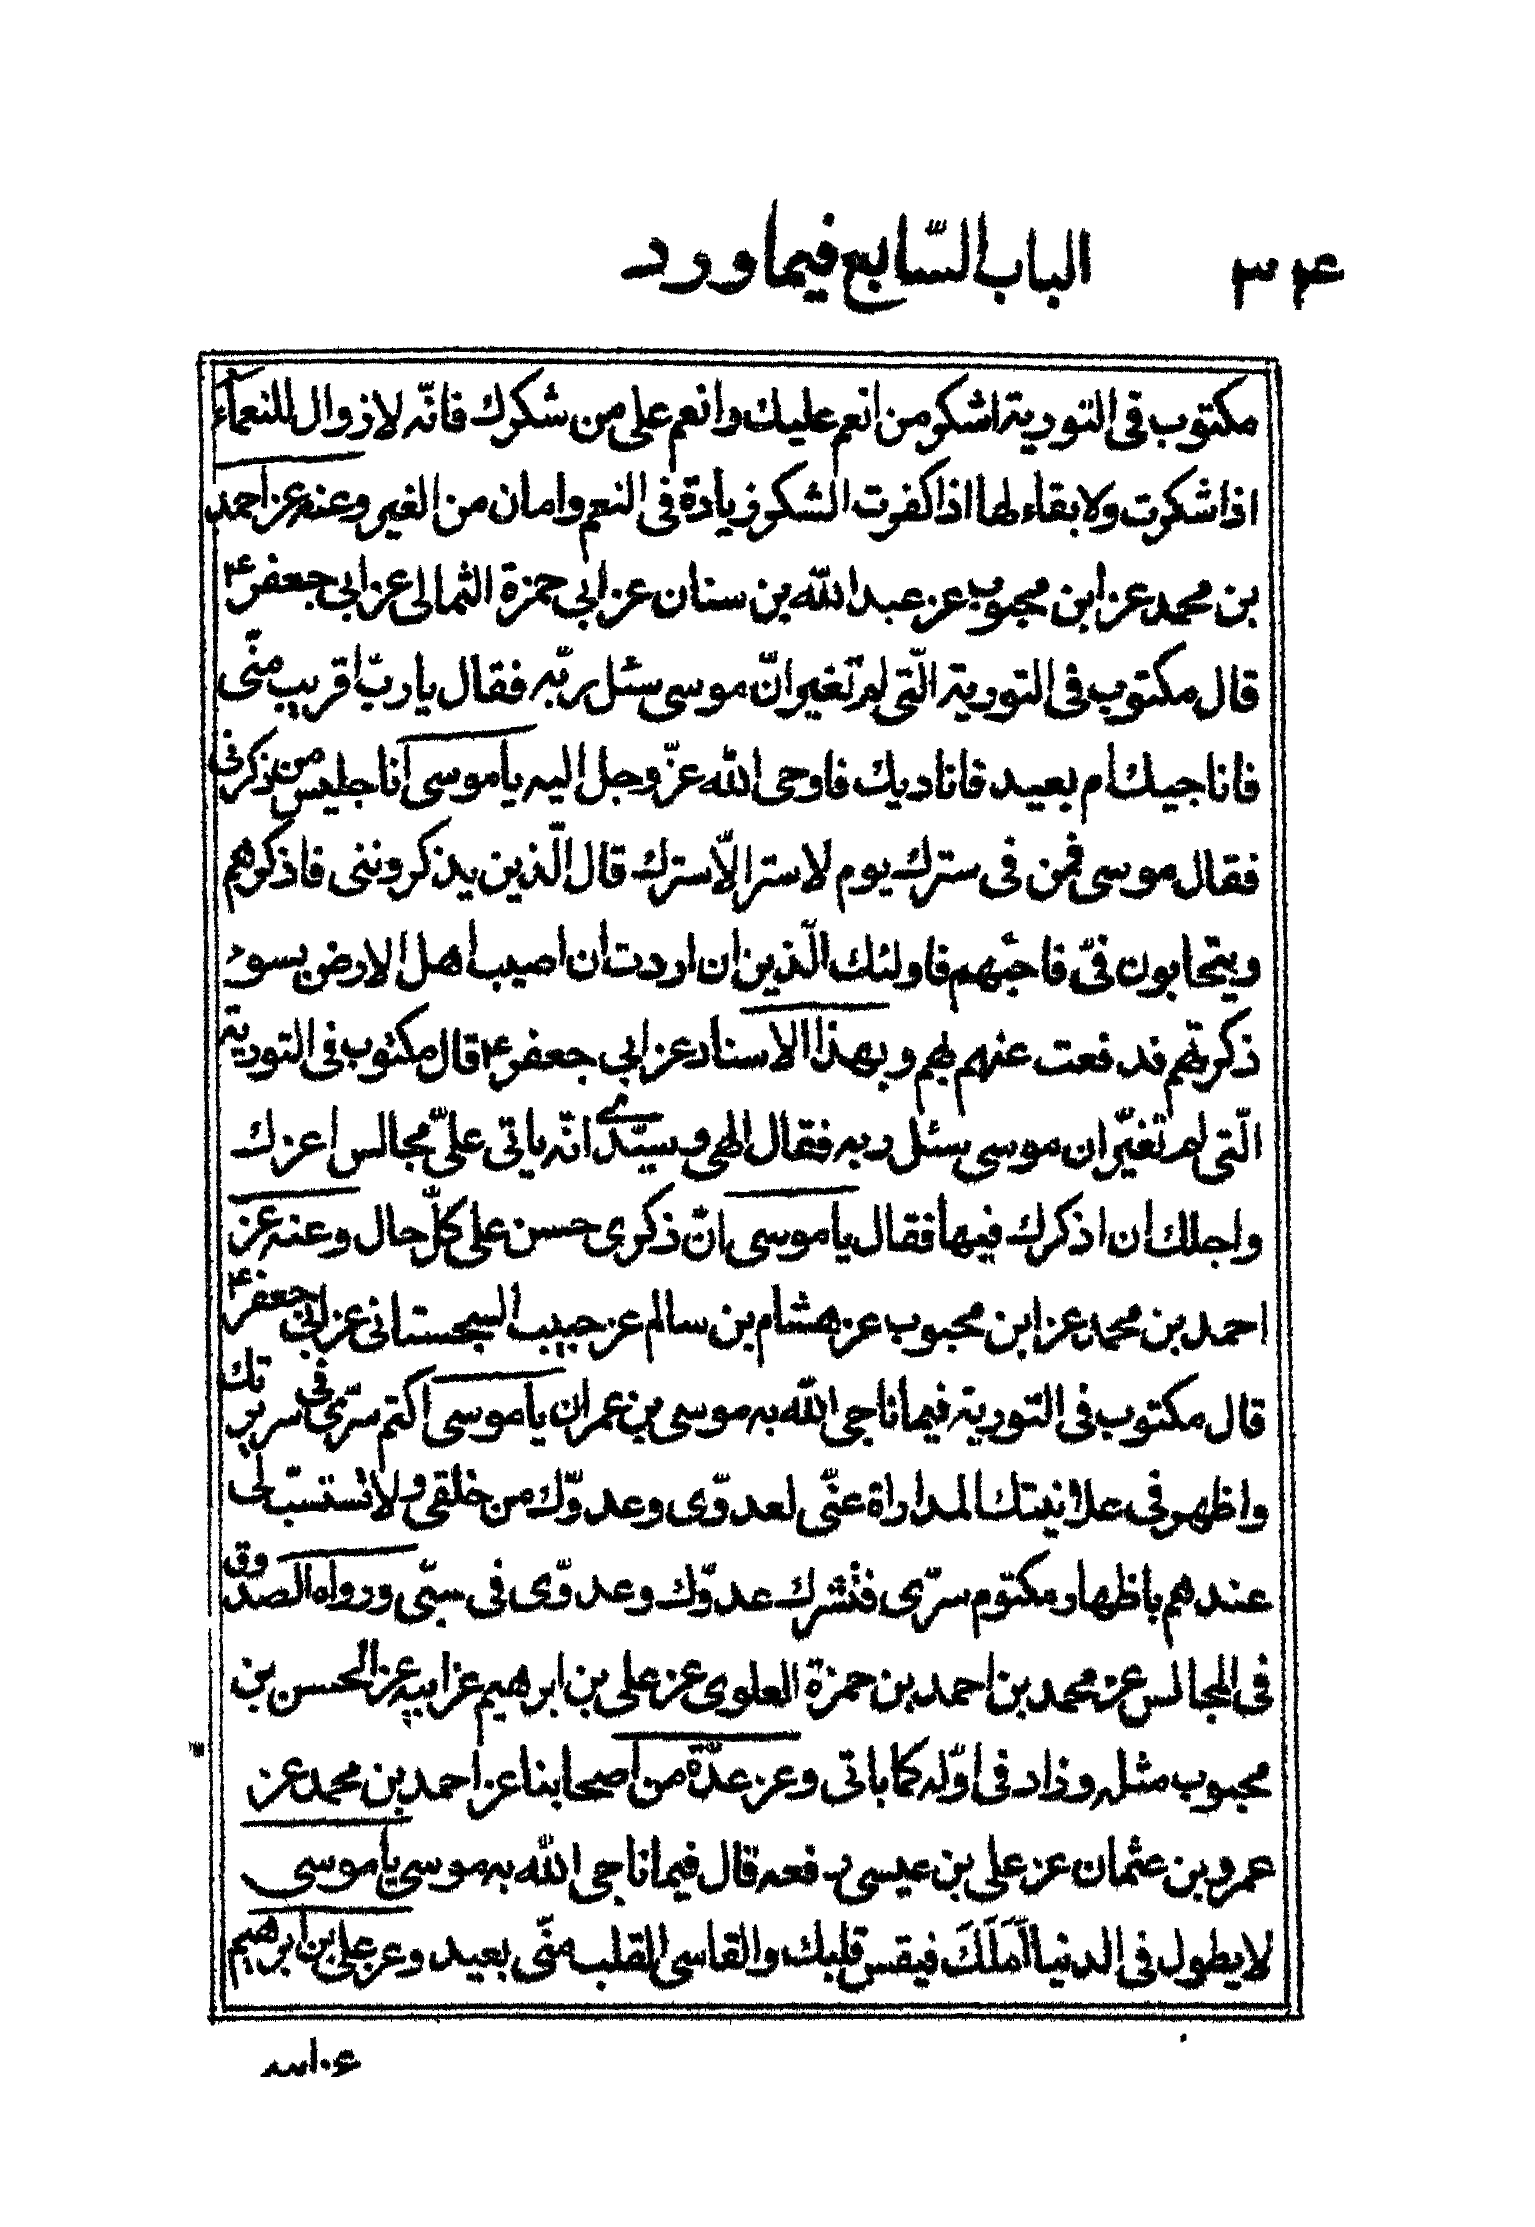 ۳۴ الباب السّابع فيما ورد
مكتوب فى التورية اشكر من انعم عليك وانعم على من شكرك فانّه لا زوال للنعمآء
اذا شكرت ولا بقاء لها اذا كفرت الشكر زيادة فى النعم وامان من الغير وعنه عن احمد
بن محمد عن ابن محبوب عن عبد الله بن سنان عن ابي حمزة الثمالى عن ابي جعفر ع
قال مكتوب فى التورية الّتى لم تغير انّ موسى سئل ربّه فقال يا ربّ اقريب منّى
فاناجيك ام بعيد فاناديك فاوحى الله عزّ وجل اليه يا موسى انا جليس من ذكرنى
فقال موسى فمن فى سترك يوم لا ستر الّا سترك قال الّذين يذكروننى فاذكرهم
ويتحابون فىّ فاحبّهم فاولئك الّذين ان اردت ان اصيب اهل الارض بسوء
ذكرتهم فدفعت عنهم بهم وبهذا الاسناد عن ابي جعفر ع قال مكتوب فى التورية
الّتى لم تغيّر ان موسى سئل ربه فقال الهى وسيّدى انّه ياتى علىّ مجالس اعزك
واجلك ان اذكرك فيها فقال يا موسى انّ ذكرى حسن على كلّ حال وعنه عن
احمد بن محمد عن ابن محبوب عن هشام بن سالم عن حبيب السجستانى عن ابي جعفر ع
قال مكتوب فى التورية فيما ناجى الله به موسى بن عمران يا موسى اكتم سرّى فى سريرتك
واظهر فى علانيتك المداراة عنّى لعدوّى وعدوّك من خلقى ولا تستسبّ لى
عندهم باظهار مكتوم سرّى فتشرك عدوّك وعدوّى فى سبّى ورواه الصدوق
فى المجالس عن محمد بن احمد بن حمزة العلوى عن على بن ابرهيم عن ابيه عن الحسن بن
محبوب مثله وزاد فى اوّله كما ياتى وعن عدّة من اصحابنا عن احمد بن محمد عن
عمرو بن عثمان عن على بن عيسى رفعه قال فيما ناجى الله به موسى يا موسى
لا يطول فى الدنيا اَمَلَكَ فيقس قلبك والقاسى القلب منّى بعيد وعن على بن ابرهيم
عن ابيه